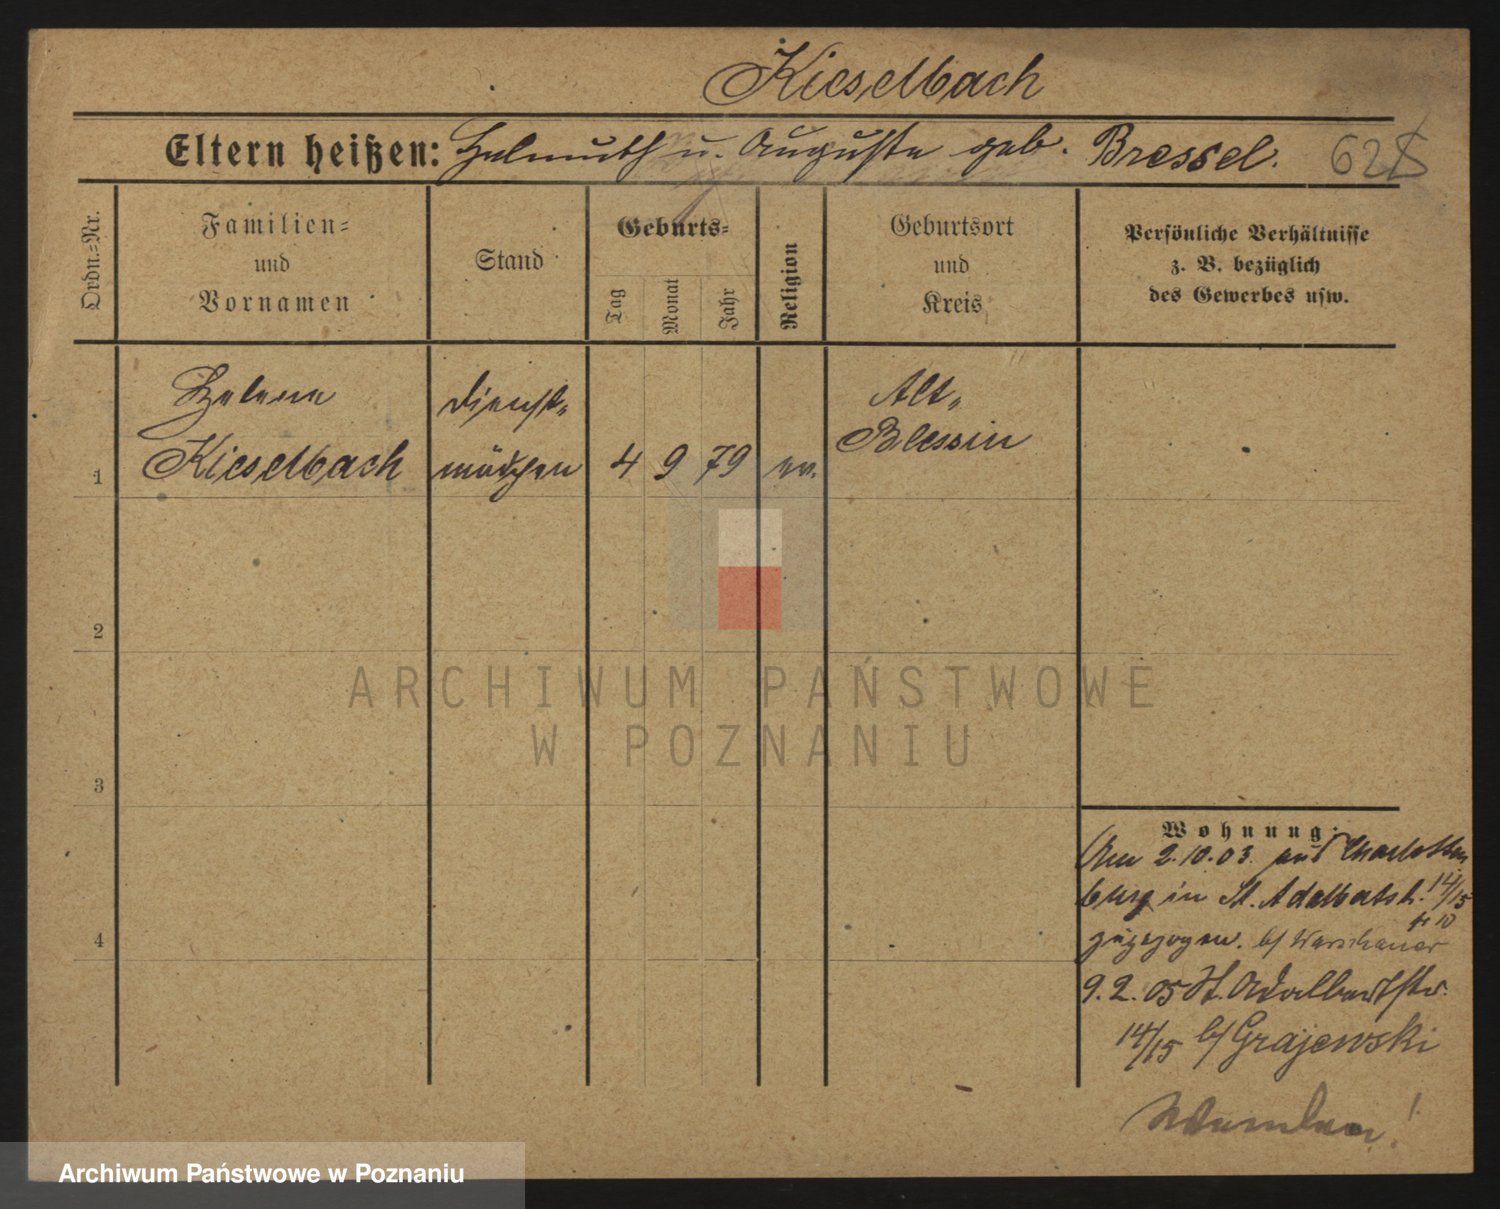 Kieselbach
Eltern heißen: Helmuth u. Auguste geb. Bressel. 628
Ordn.=Nr.
Familien=
und
Vornamen
Stand
Geburts=
Tag
Monat
Jahr
Religion
Geburtsort
und
Kreis
Persönliche Verhältnisse
z. B. bezüglich
des Gewerbes usw.
Helene
Kieselbach
Dienst=
mädchen
1
4 9 79
ev.
Alt=
Blessin
2
3
4
Wohnung:
Am 2.10.03. aus Charlotten
burg in St. Adalbertstr. 14/15
zugezogen. b/ Warschauer
9.2.05 St. Adalbertstr.
14/15 b/ Grajewski
ARCHIWUM PAŃSTWOWE
W POZNANIU
Archiwum Państwowe w Poznaniu